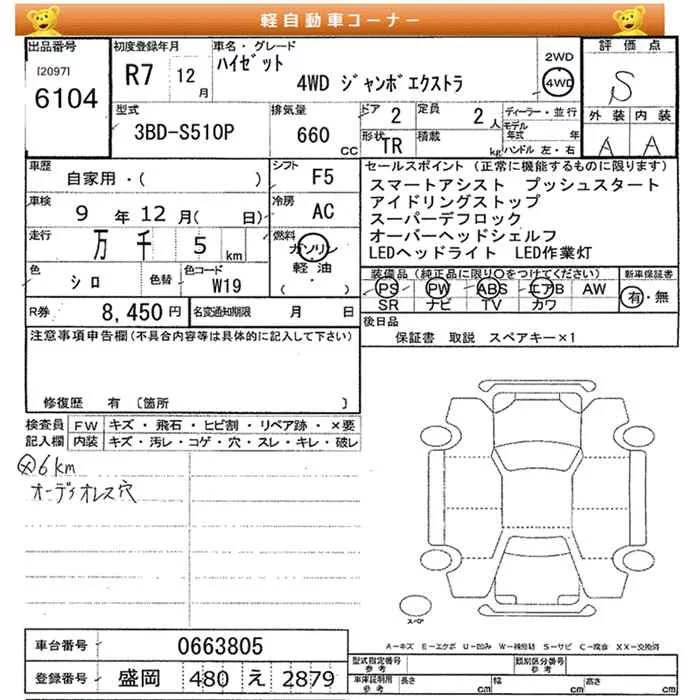 軽自動車コーナー
出品番号
[2097]
6104
初度登録年月
R7 12月
車名・グレード
ハイゼット
4WD ジャンボエクストラ
2WD
4WD
評価点
S
外装 内装
A A
型式
3BD-S510P
排気量
660 CC
ドア 2
定員 2 人
形状 TR
積載 kg
ディーラー・並行
モデル年式 年
ハンドル 左・右
車歴
自家用・( )
シフト F5
車検 9 年 12 月( 日)
冷房 AC
走行 万 千 5 km
燃料 ガソリン
軽油
( ・ )
色 シロ 色替
色コード W19
R券 8,450 円
名変通知期限 月 日
セールスポイント(正常に機能するものに限ります)
スマートアシスト プッシュスタート
アイドリングストップ
スーパーデフロック
オーバーヘッドシェルフ
LEDヘッドライト LED作業灯
装備品(純正品に限り○をつけてください)
PS PW ABS エアB AW
SR ナビ TV カワ
新車保証書
有・無
後日品
保証書 取説 スペアキー×1
注意事項申告欄(不具合内容等は具体的に記入して下さい)
修復歴 有 〔箇所 〕
検査員記入欄
FW キズ・飛石・ヒビ割・リペア跡・×要
内装 キズ・汚レ・コゲ・穴・スレ・キレ・破レ
6km
オーディオレス穴
スペア
A-キズ E-エクボ U-凹み W-補修跡 S-サビ C-腐食 XX-交換済
車台番号 0663805
登録番号 盛岡 480 え 2879
型式指定番号 参考
類別区分番号 参考
車庫証明用 参考
長さ cm 幅 cm 高さ cm